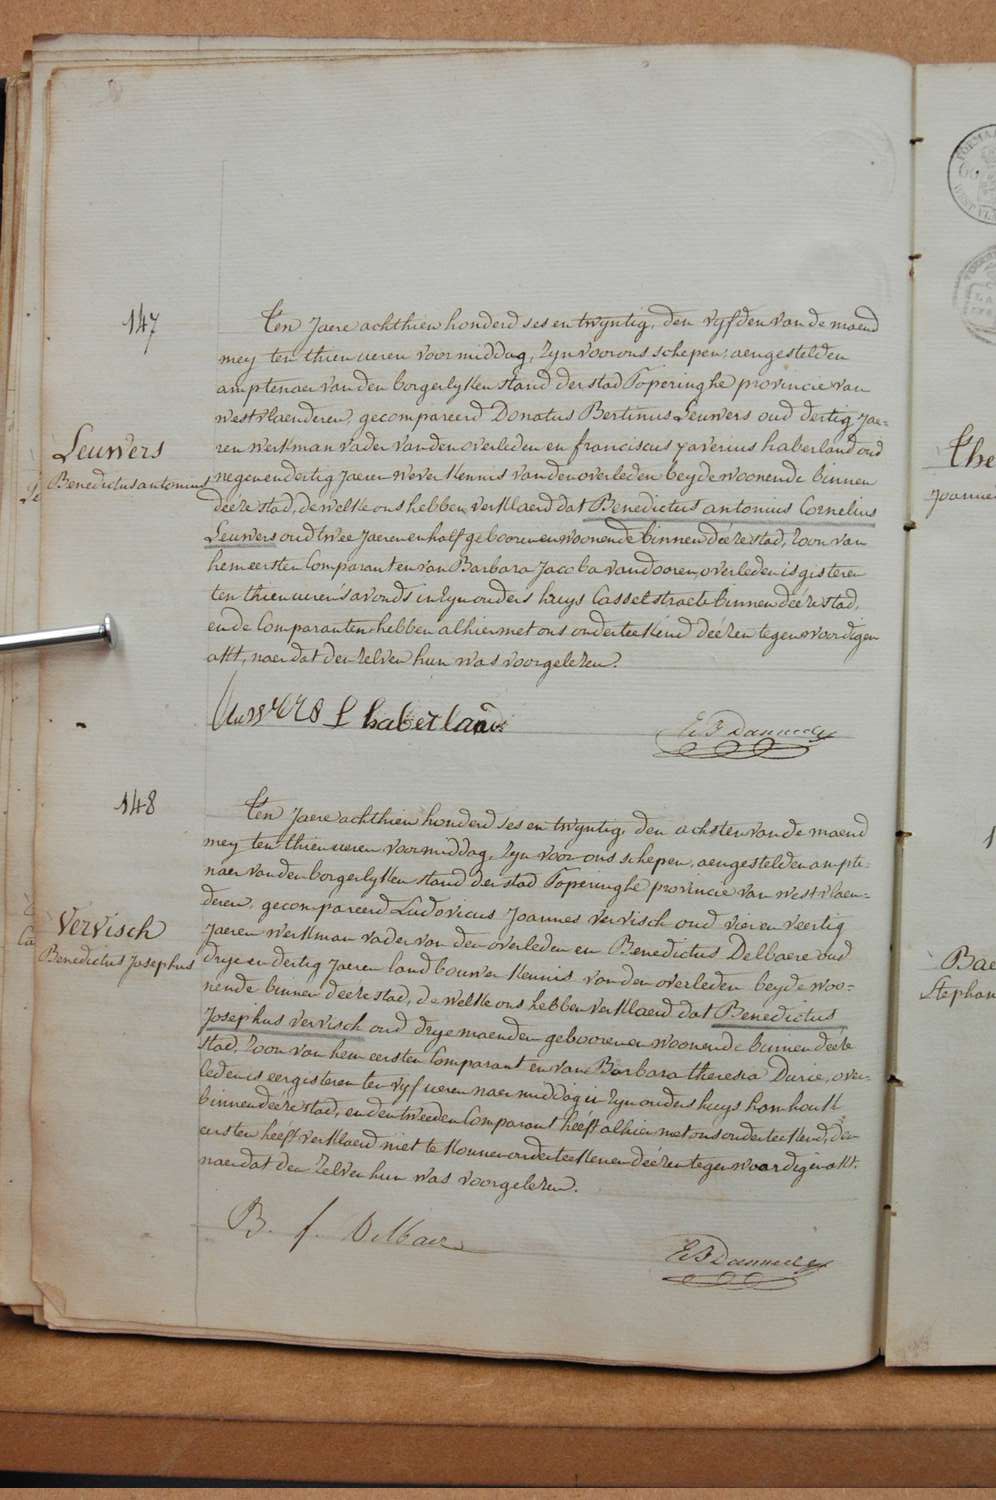 147
Ten Jaere achthien honderd ses en twyntig, den vyfden van de maend
mey ten thien ueren voormiddag, zyn voor ons schepen, aengestelden
amptenaer van den borgerlyken stand der stad Poperinghe provincie van
westvlaenderen, gecompareerd Donatus Bertinus Leuwers oud dertig Jae-
ren werkman vader van den overleden en franciscus xaverius haberland oud
negen en dertig Jaeren wever kennis van den overleden beyde woonende binnen
deeze stad, de welke ons hebben verklaerd dat Benedictus antonius Cornelius
Leuwers oud twee Jaeren en half gebooren en woonende binnen deéze stad, zoon van
hem eersten Comparant en van Barbara Jacoba vandooren, overleden is gisteren
ten thien ueren s'avonds in zyn ouders huys Casselstraete binnen deéze stad,
en de Comparanten hebben alhier met ons onderteekend deézen tegenwoordigen
akt, naer dat den zelven hun was voorgelezen.
Leuwers
Benedictus antonius
f haberland
148
Ten Jaere achthien honderd ses en twyntig, den achsten van de maend
mey ten thien ueren voormiddag, zyn voor ons schepen, aengestelden ampte-
naer van den borgerlyken stand der stad Poperinghe provincie van westvlaen-
deren, gecompareerd Ludovicus Joannes Vervisch oud vier en veertig
Jaeren werkman vader van den overleden en Benedictus Delbaere oud
drye en dertig Jaeren landbouwer kennis van den overleden beyde woo-
nende binnen deeze stad, de welke ons hebben verklaerd dat Benedictus
Josephus Vervisch oud drye maenden gebooren en woonende binnen deéze
stad, zoon van hem eersten Comparant en van Barbara theresia Durie, over-
leden is eergisteren ten vyf ueren naermiddag in zyn ouders huys
binnen deéze stad, en den tweeden Comparant héeft alhier met ons onderteekend, den
eersten heéft verklaerd niet te konnen onderteekenen deézen tegenwoordigen akt,
naer dat den zelven hun was voorgelezen.
Vervisch
Benedictus Josephus
B. f. Delbaere
The
Joannes
Bae
Stephan